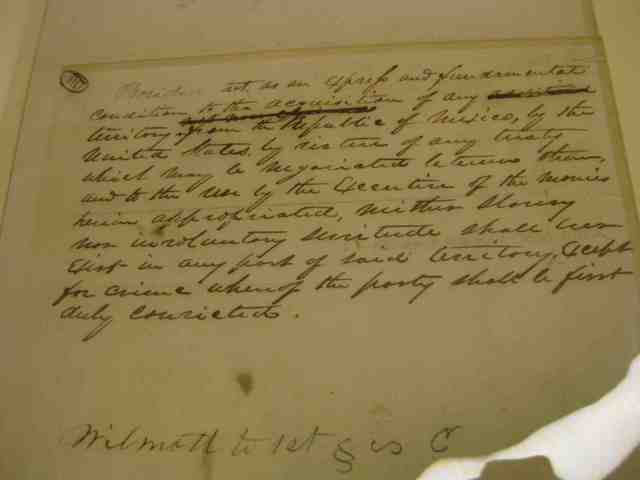 Provided that as an express and fundamental
condition to the acquisition of any
territory from the Republic of Mexico, by the
United States, by virtue of any treaty
which may be negociated between them,
and to the use by the Executive of the monies
herein appropriated, neither slavery
nor involuntary servitude shall ever
exist in any part of said territory, except
for crime whereof the party shall be first
duly convicted.
Wilmott to 1st §